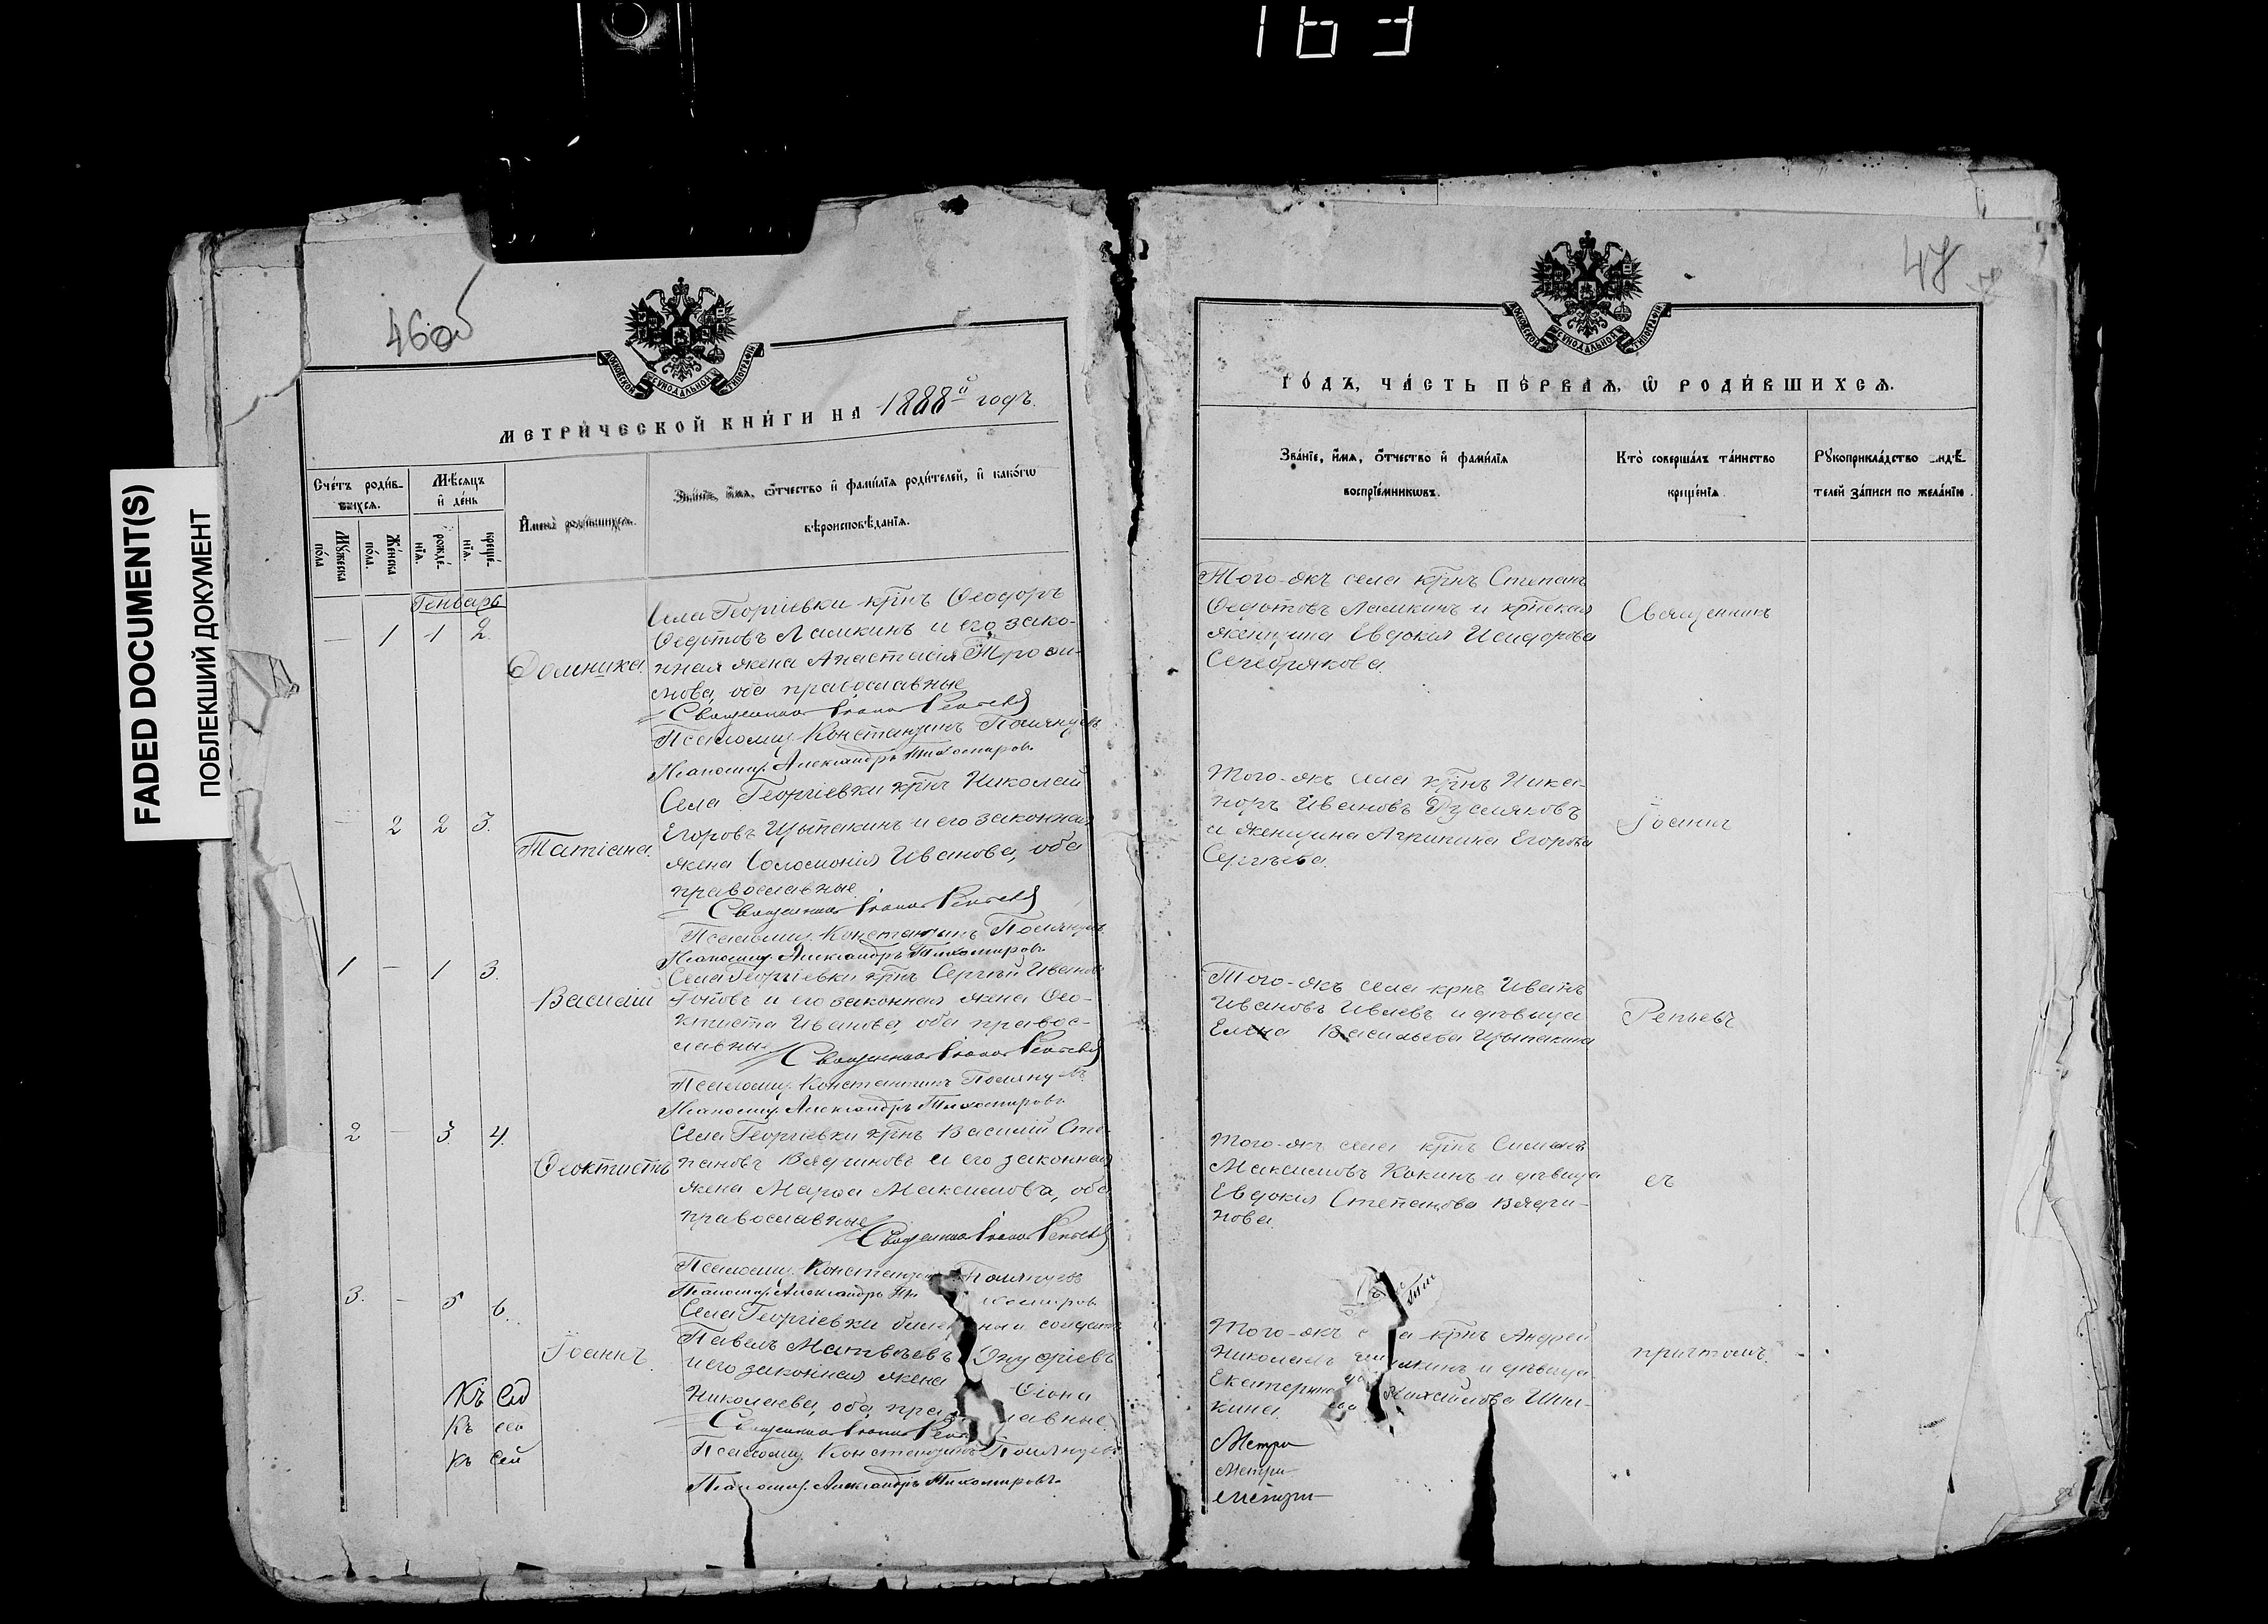 163
FADED DOCUMENT(S)
ПОБЛЕКШИЙ ДОКУМЕНТ
46об
МОСКОВСКОЙ СѴНОДАЛЬНОЙ ТИПОГРАФІИ
МЕТРИ́ЧЕСКОЙ КНИ́ГИ НА 1888й годъ.
Сче́тъ роди́в-
шихсѧ.
Мѣ́сѧцъ
и҆ де́нь
Мꙋ́жеска по́ла
Же́нска по́ла.
рожде́-
нїѧ.
креще́-
нїѧ.
И҆мена̀ роди́вшихсѧ.
Зва́нїе, и҆́мѧ, ѻ҆́тчество и҆ фами́лїѧ роди́телей, и҆ како́гѡ
вѣроисповѣ́данїѧ.
Генварь
— 1 1 2.
Домника.
Села Георгіевки крнъ Ѳеодоръ
Ѳедотовъ Ламкинъ и его зако-
нная жена Анастасія Трофи-
мова, оба православные
Священникъ Іоаннъ Репьевъ
Псаломщ. Константинъ Полянцевъ
Псаломщ. Александръ Тихомировъ.
— 2 2 3.
Татіана.
Села Георгіевки крнъ Николай
Егоровъ Цыпакинъ и его законная
жена Соломонія Иванова, оба
православные
Священникъ Іоаннъ Репьевъ
Псаломщ. Константинъ Полянцевъ
Псаломщ. Александръ Тихомировъ.
1 — 1 3.
Василій
Села Георгіевки крнъ Сергѣй Ивановъ
и его законная жена Ѳео-
ктиста Иванова, оба правос-
лавны
Священникъ Іоаннъ Репьевъ
Псаломщ. Константинъ Полянцевъ
Псаломщ. Александръ Тихомировъ.
2 — 3 4.
Ѳеоктистъ
Села Георгіевки крнъ Василій Сте-
пановъ и его законная
жена Марѳа Максимова, оба
православные
Священникъ Іоаннъ Репьевъ
Псаломщ. Константинъ Полянцевъ
Псаломщ. Александръ Тихомировъ
3. — 5 6.
Іоаннъ.
Села Георгіевки солдатъ
Павелъ Матвѣевъ Онуфріевъ
и его законная жена
Николаева, оба православные
Священникъ Іоаннъ Репь
Псаломщ. Константинъ Полянцевъ
Псаломщ. Александръ Тихомировъ.
Къ сей
Къ сей
Къ сей
47
МОСКОВСКОЙ СѴНОДАЛЬНОЙ ТИПОГРАФІИ
ГО́ДЪ, ЧА́СТЬ ПЕ́РВАѦ, Ѡ҆ РОДИ́ВШИХСѦ.
Зва́нїе, и҆́мѧ, ѻ҆́тчество и҆ фами́лїѧ
воспрїе́мникѡвъ.
Кто̀ соверша́лъ та́инство
креще́нїѧ.
Рꙋкоприкла́дство
телей за́писи по жела́нїю.
Того-жъ села крнъ Степанъ
Ѳедотовъ Ламкинъ и крнская
женщина Евдокія Исидорова
Серебрякова.
Священникъ
Того-жъ села крнъ Ника-
норъ Ивановъ
и женщина Агрипина Егорова
Сергѣева.
Іоаннъ
Того-жъ села крнъ Иванъ
Ивановъ Ивлевъ и дѣвица
Елена Васильева Цыпакина
Репьевъ
Того-жъ села крнъ
Максимовъ Кокинъ и дѣвица
Евдокія Степанова
нова.
съ
Того-жъ села крнъ Андрей
Николаевъ и дѣвица
Екатерина Михайлова
кина.
причтомъ.
Метри
Метри
Метри